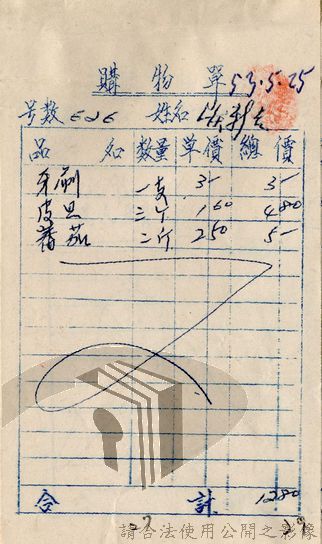 購物單 53.5.25
号数 626 姓名
品名 数量 單價 總價
牙刷 一支 3- 3-
皮旦 三个 1 60 4 80
蕃茄 二斤 2 50 5-
合計 1280
27
請合法使用公開之影像